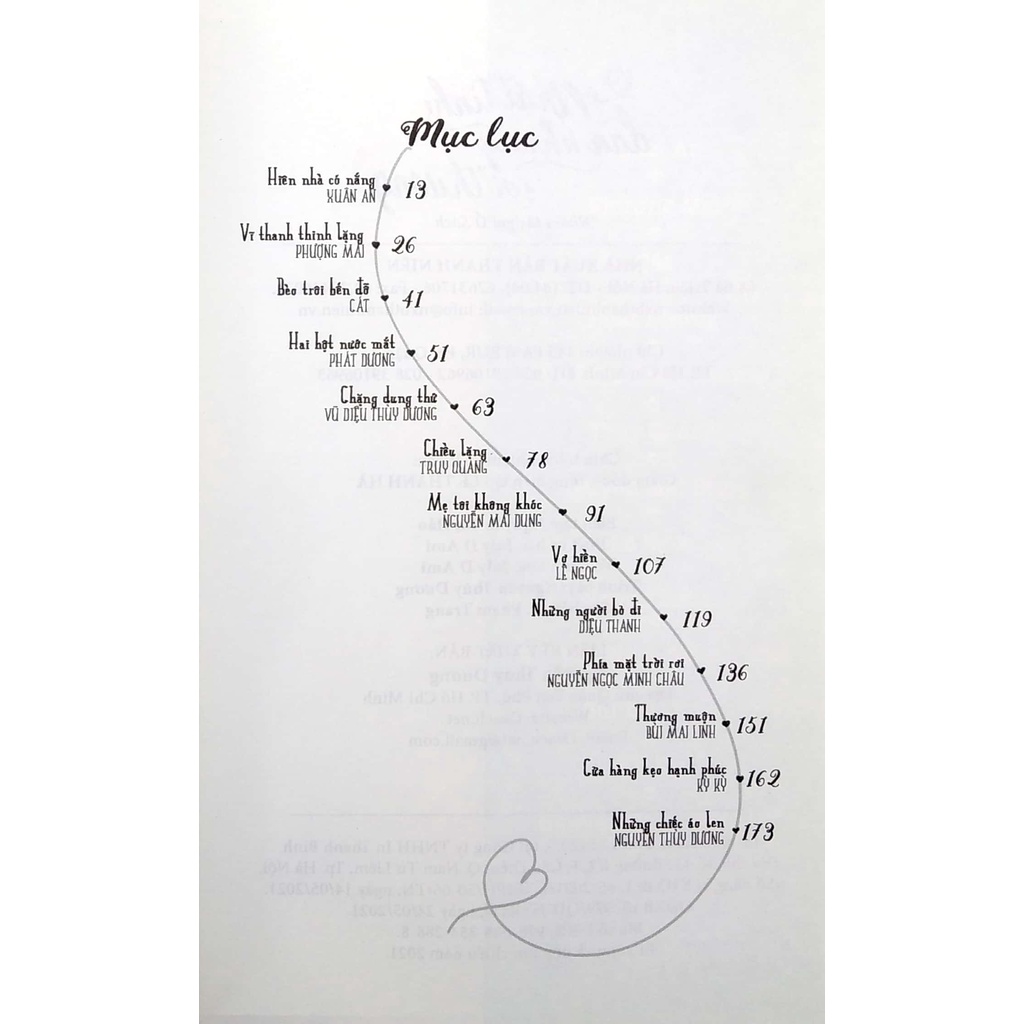 Mục lục
Hiên nhà có nắng
XUÂN AN
13
Vĩ thanh thinh lặng
PHƯỢNG MAI
26
Bèo trôi bến đỗ
CÁT
41
Hai hạt nước mắt
PHÁT DƯƠNG
51
Chặng dung thứ
VŨ DIỆU THÙY DƯƠNG
63
Chiều lặng
TRUY QUANG
78
Mẹ tôi không khóc
NGUYỄN MAI DUNG
91
Vợ hiền
LÊ NGỌC
107
Những người bỏ đi
DIỆU THANH
119
Phía mặt trời rơi
NGUYỄN NGỌC MINH CHÂU
136
Thương muộn
BÙI MAI LINH
151
Cửa hàng kẹo hạnh phúc
KỲ KỲ
162
Những chiếc áo len
NGUYỄN THÙY DƯƠNG
173